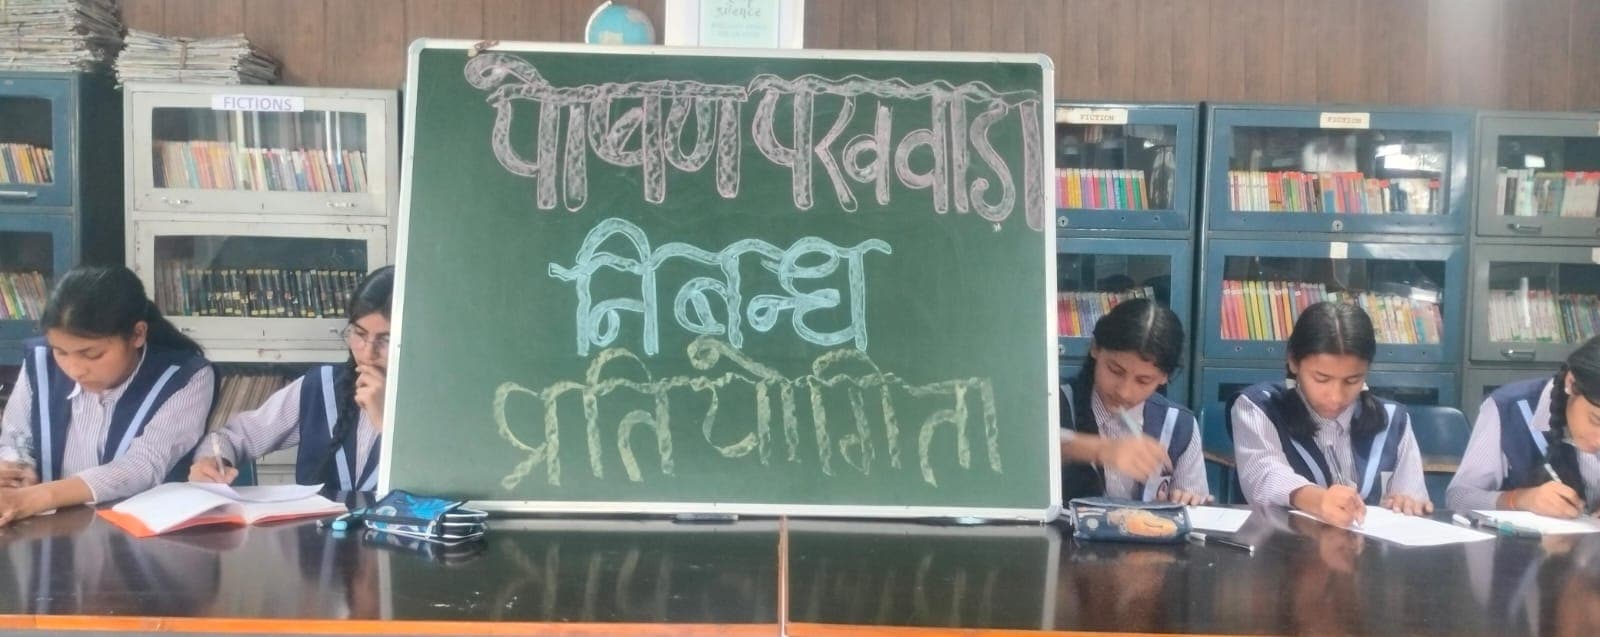 silence
FICTIONS
पोषण पखवाडा
FICTION
FICTION
निबन्ध
प्रतियोगिता